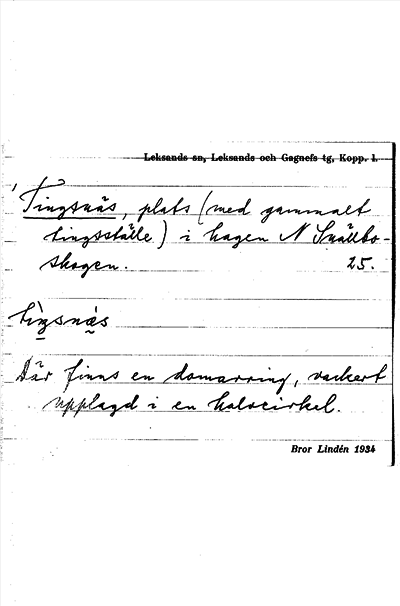 Leksands sn, Leksands och Gagnefs tg, Kopp. l.
Tingsnäs, plats (med gammalt
tingsställe) i hagen N Snällbo-
skogen. 25.
tìŋsnä̀s
Där finns en domarring, vackert
upplagd i en halvcirkel.
Bror Lindén 1934